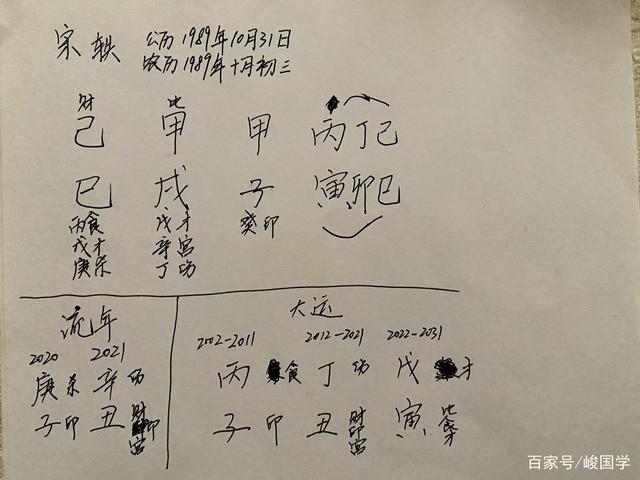 宋轶 公历1989年10月31日
农历1989年十月初三
财 比
己 甲 甲 丙丁己
巳 戌 子 寅、卯巳
丙食 戊才 癸印
戊才 辛官
庚杀 丁伤
流年 大运
2020 2021 2002-2011 2012-2021 2022-2031
庚杀 辛伤 丙食 丁伤 戊才
子印 丑财印官 子印 丑财印官 寅比食才
百家号/峻国学